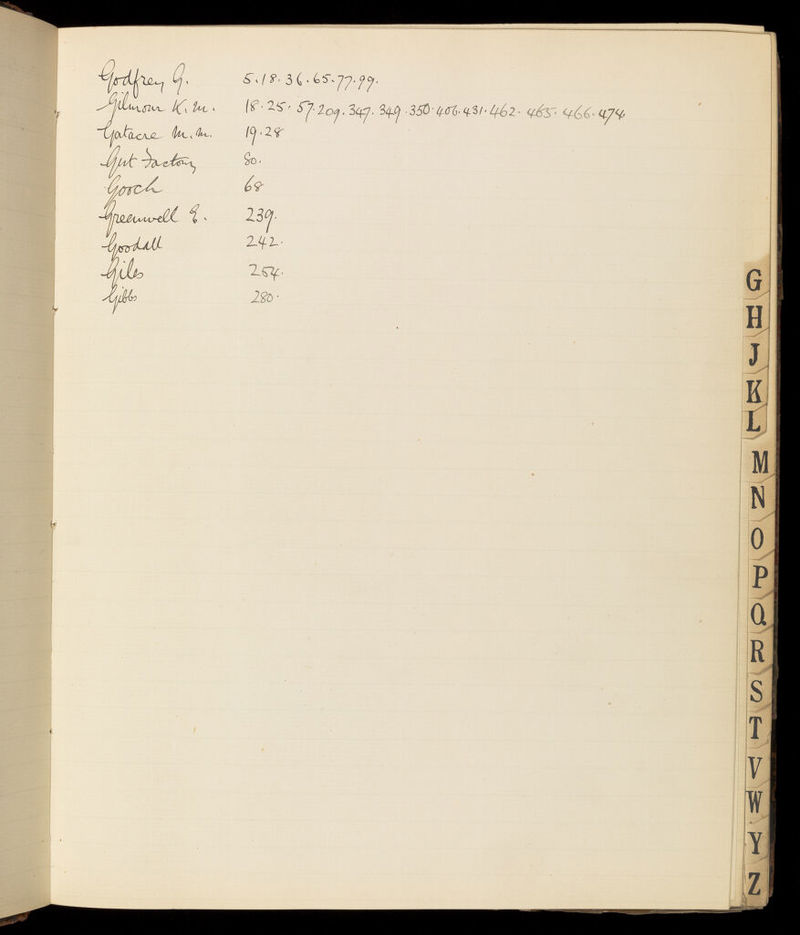 Godfrey G. 5. 18. 36. 65. 77. 99.
Gilmour K. M. 18. 25. 57. 209. 347. 349. 350. 406. 431. 462. 465. 466. 474.
Gatacre M. M. 19. 28
Gut Factory 80.
Gooch 68
Greenwell E. 239.
Goodall 242.
Giles 254.
Gibbs 280.
G
H
J
K
L
M
N
O
P
Q
R
S
T
V
W
Y
Z